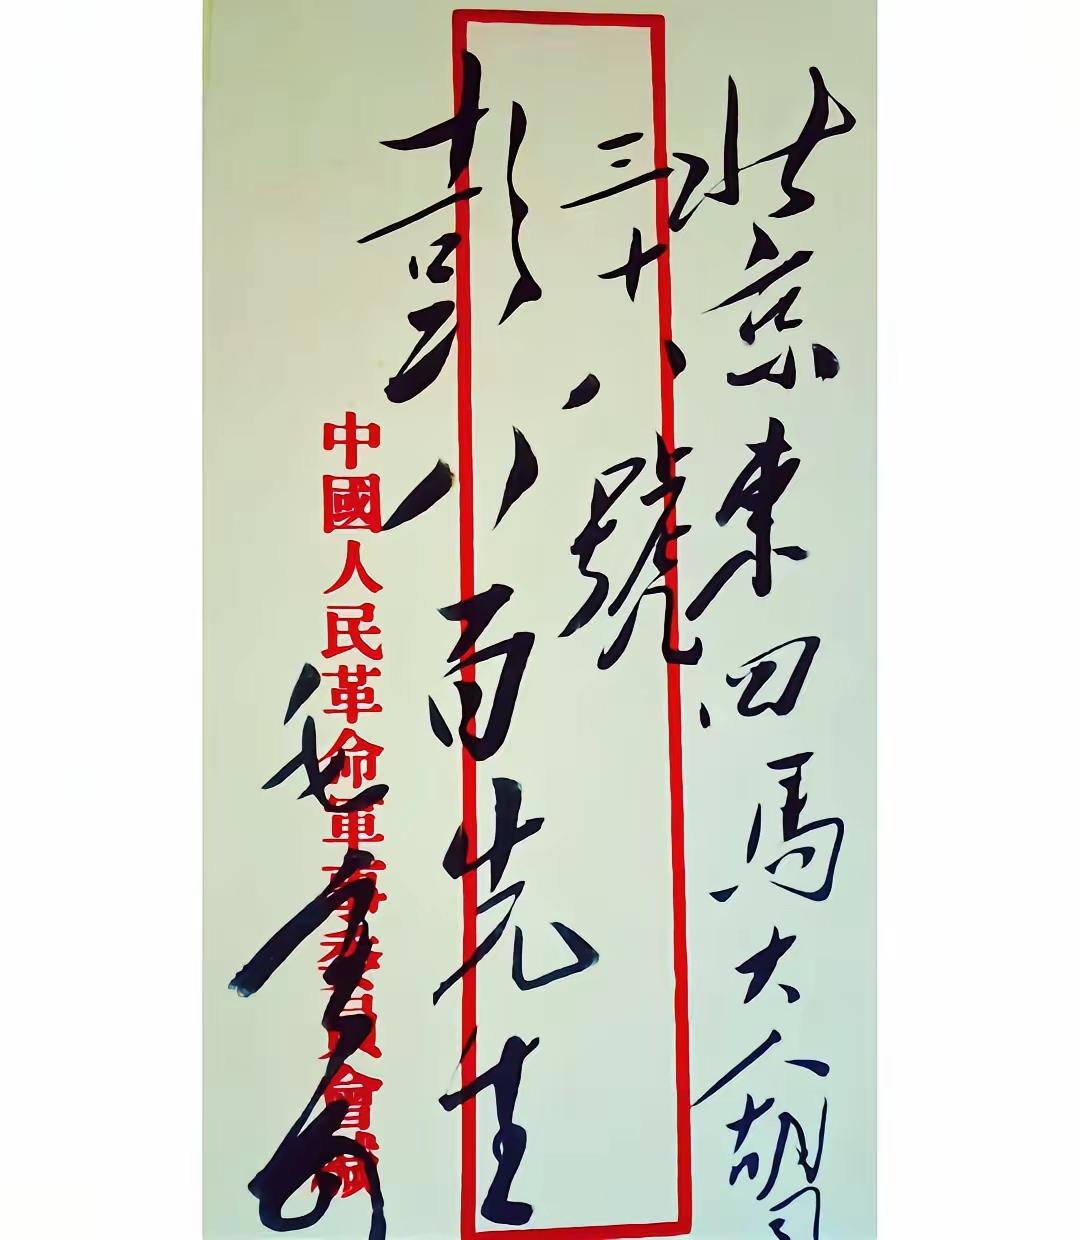 北京東四馬大人胡同
三十八號
彭八百先生
中國人民革命軍事委員會緘